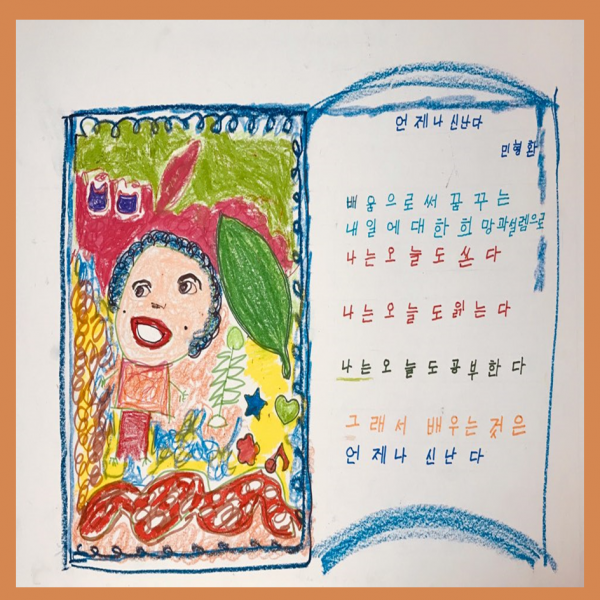 언제나 신난다
민형함
배웅으로써 꿈 꾸는
내일에 대한 희망과 설렘으로
나는 오늘도 쓴다
나는 오늘도 읽는다
나는 오늘도 공부한다
그래서 배우는 것은
언제나 신난다